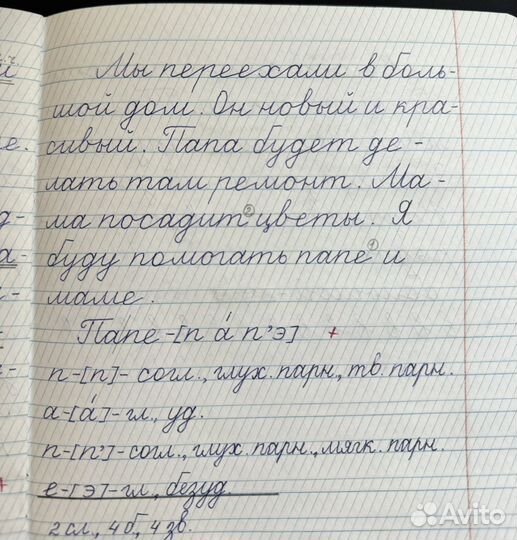 Мы переехали в боль-
шой дом. Он новый и кра-
е. сивый. Папа будет де-
лать там ремонт. Ма-
д- ма посадит② цветы. Я
а- буду помогать папе① и
маме.
Папе-[п а́ п’э] +
п-[п]- согл., глух. парн., тв. парн.
а-[а́]-гл., уд.
п-[п’]-согл., глух. парн., мягк. парн.
е-[э]-гл., безуд.
2 сл., 4 б., 4 зв.
Avito